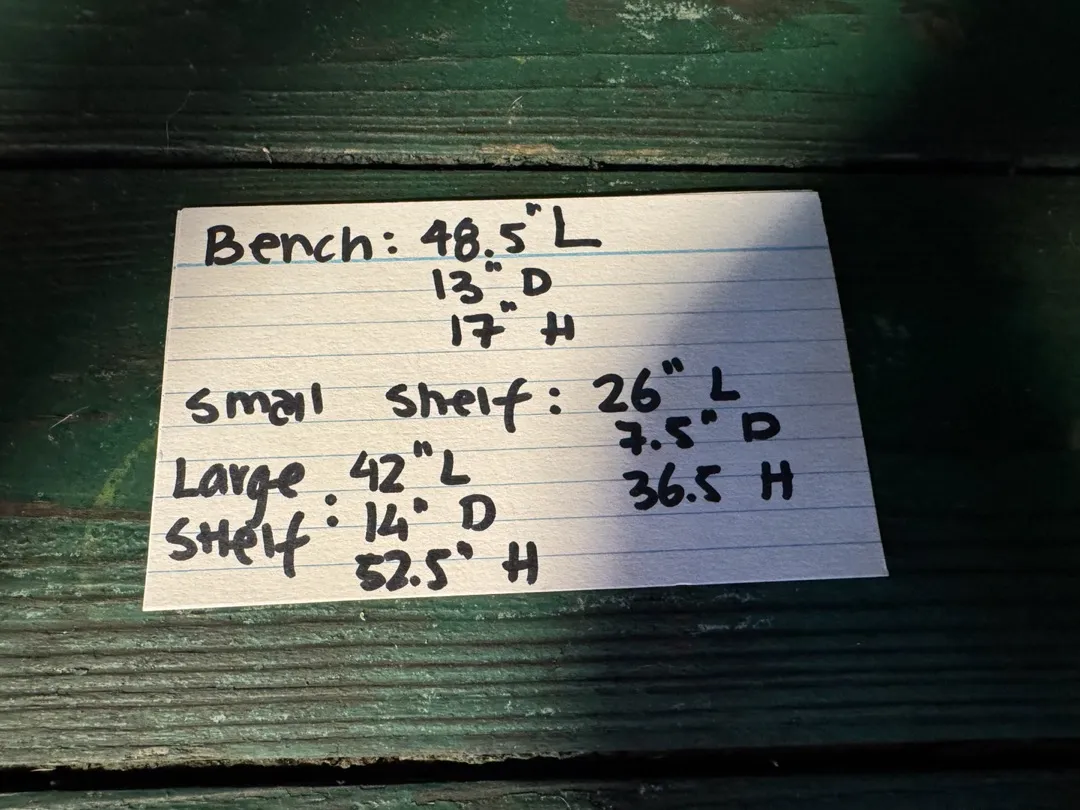 Bench: 48.5" L
13" D
17" H
Small Shelf: 26" L
7.5" D
36.5 H
Large Shelf: 42" L
14" D
52.5" H